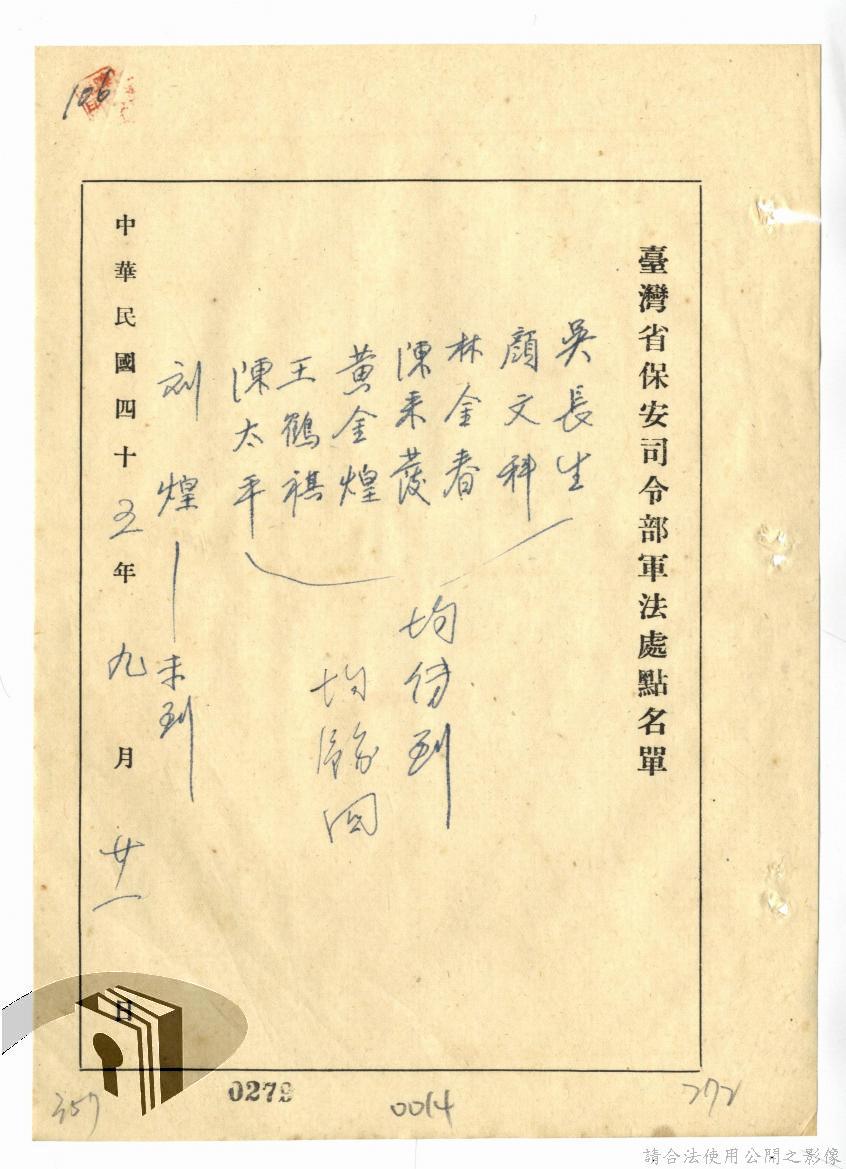 106
臺灣省保安司令部軍法處點名單
吳長生
顏文科
林金春
陳来發
黃金煌
王鶴祺
陳太平
均傳到
均
回
刘煌—未到
中華民國四十五年九月廿一日
357
0279
0014
272
請合法使用公開之影像